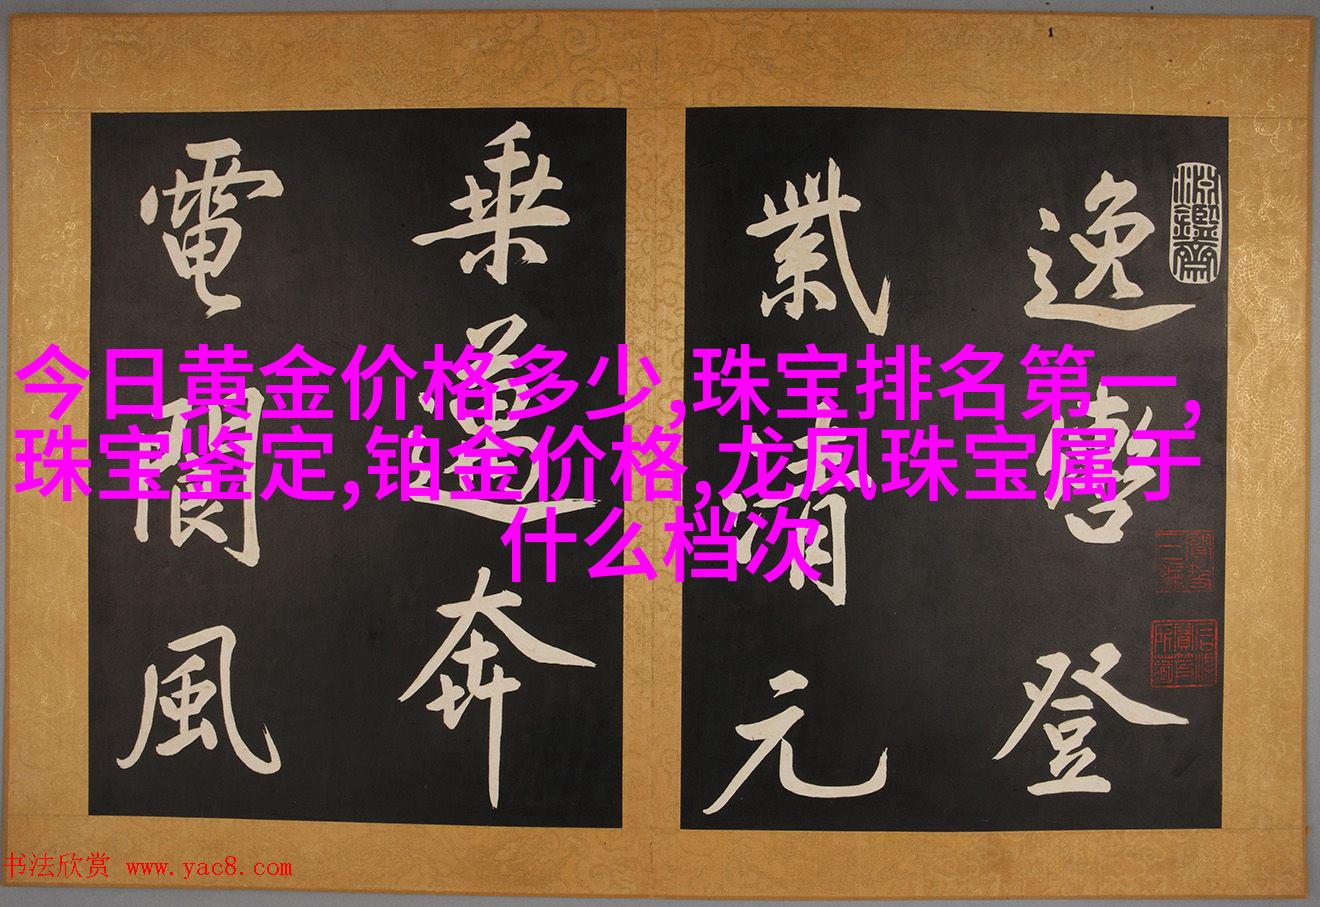 今日黄金价格多少,珠宝排名第一,
珠宝鉴定,铂金价格,龙凤珠宝属于
什么档次
逸轡登
紫清元
乘邁奔
電閬風
书法欣赏 www.yac8.com